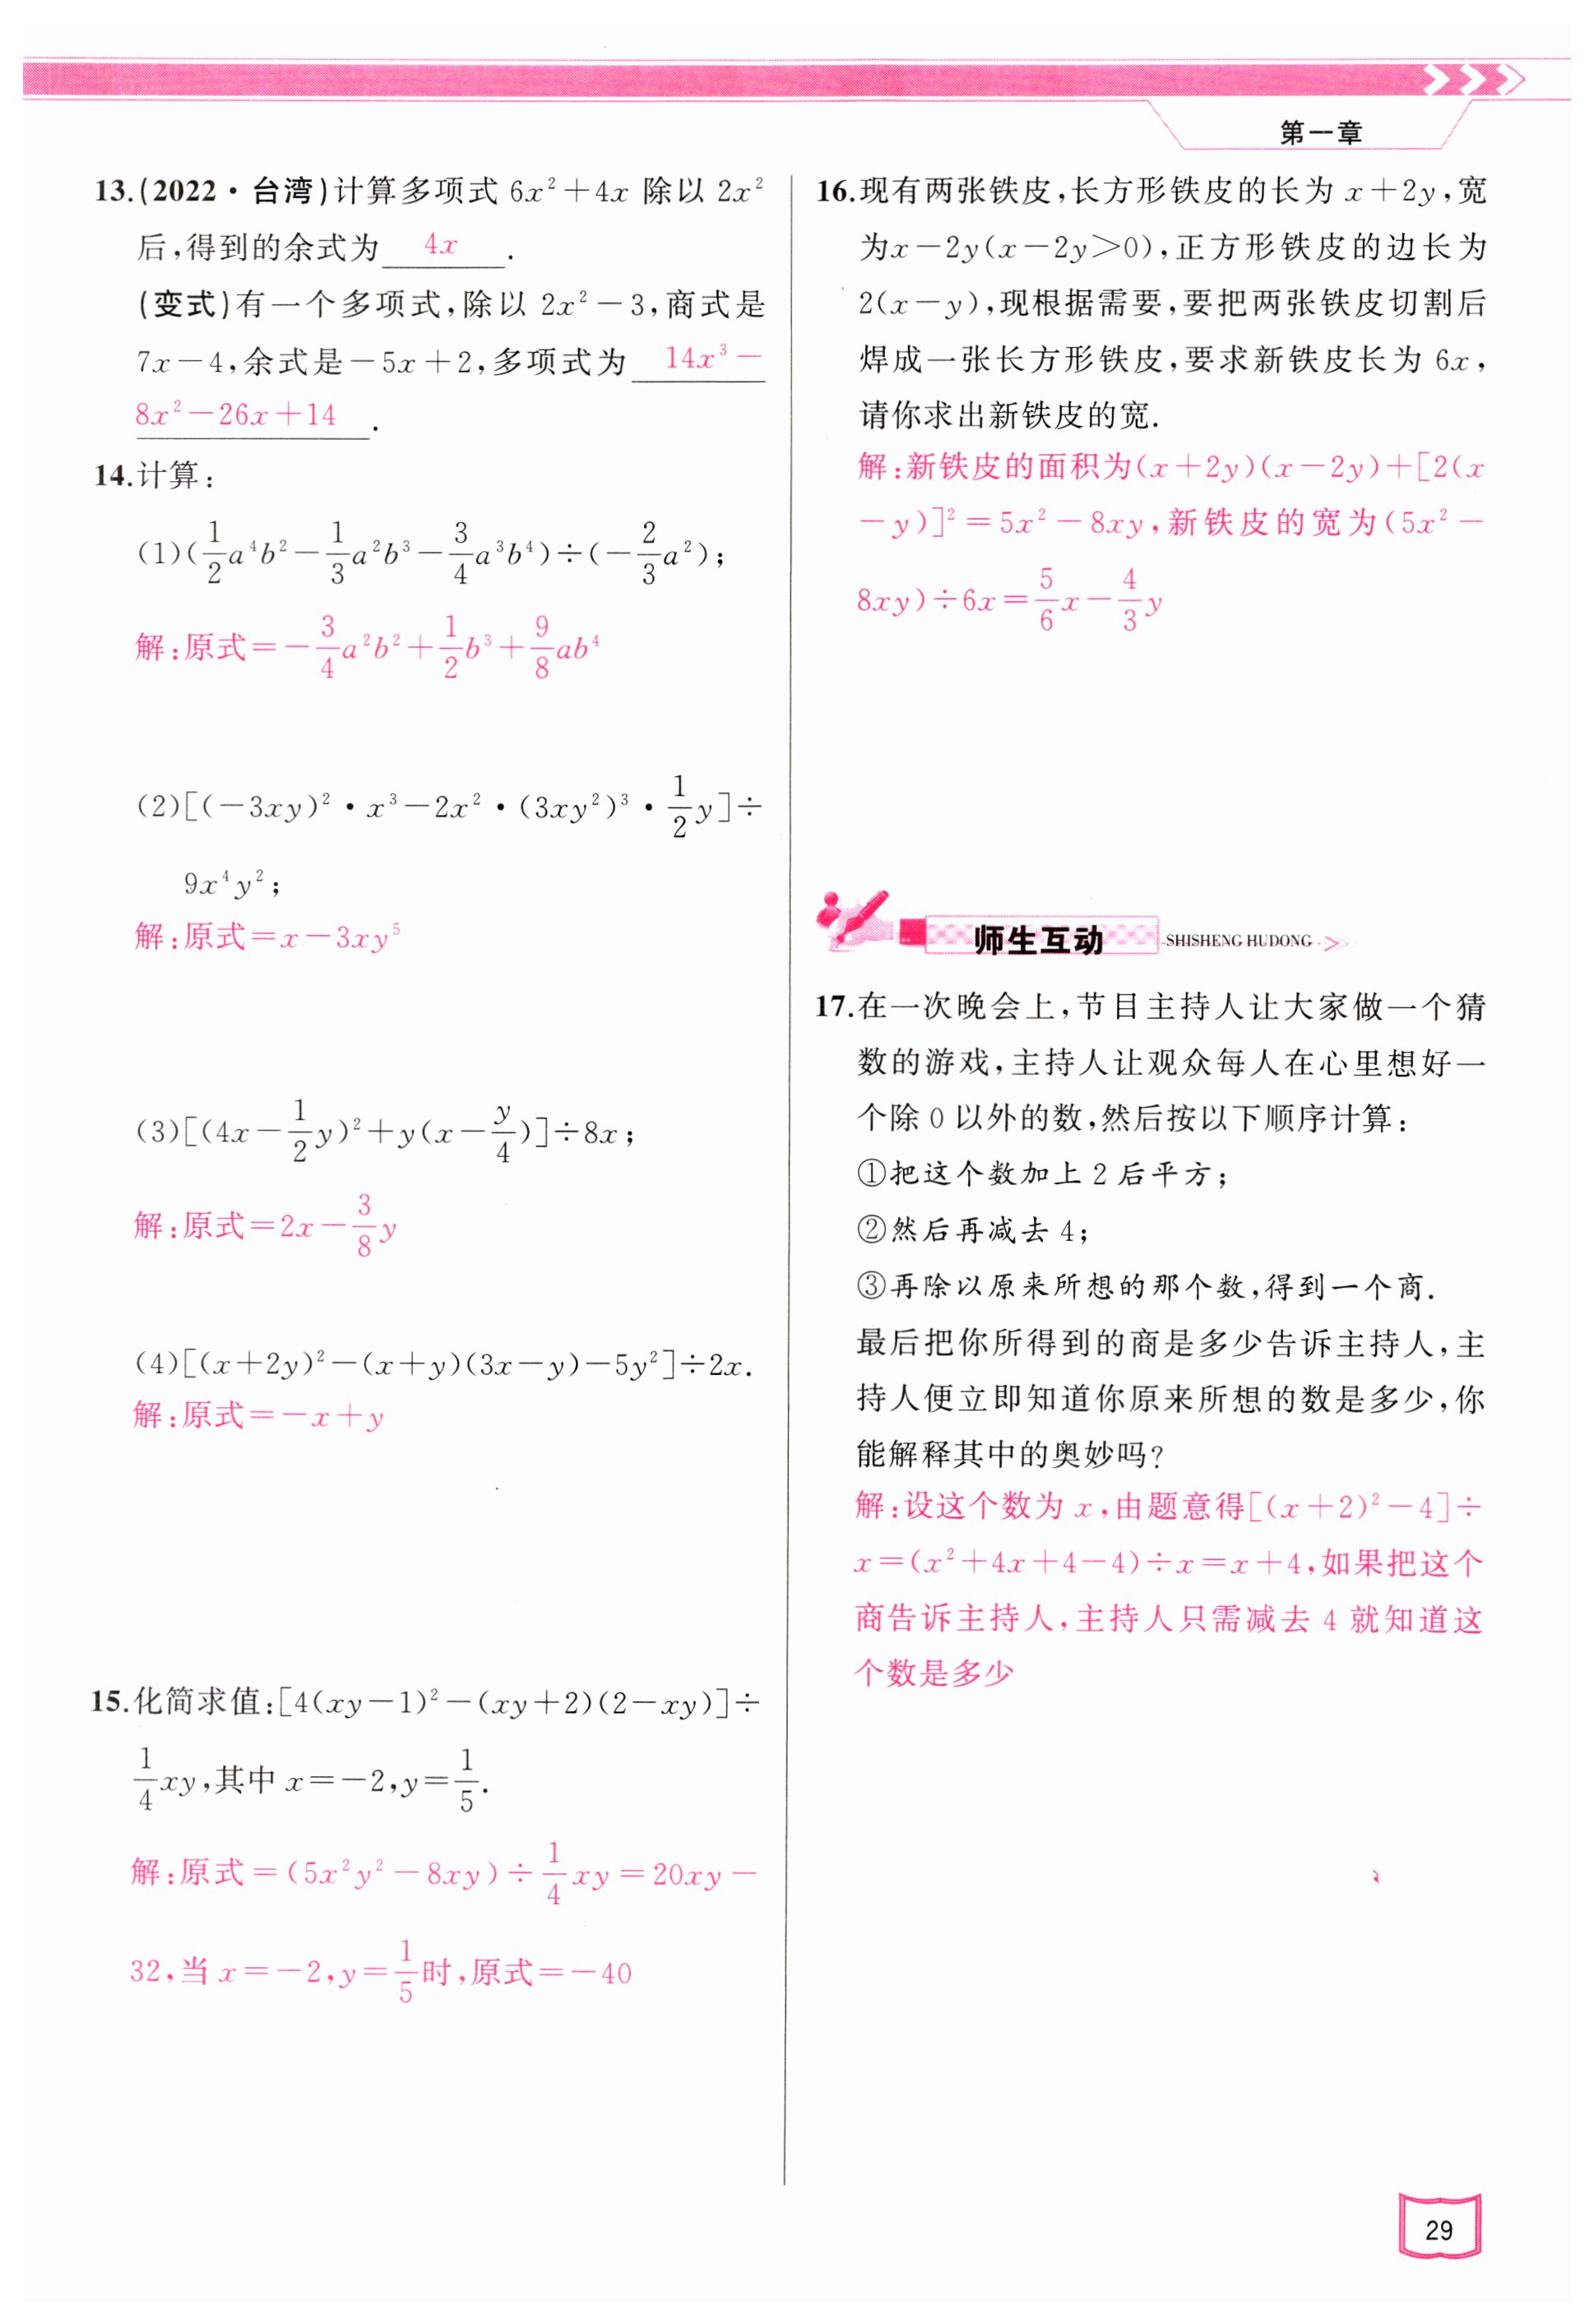 第一章
13.(2022·台湾)计算多项式 6x²+4x 除以 2x²
后,得到的余式为 4x .
(变式)有一个多项式,除以 2x²-3,商式是
7x-4,余式是-5x+2,多项式为 14x³-
8x²-26x+14 .
14.计算:
(1)(1/2 a⁴b²-1/3 a²b³-3/4 a³b⁴)÷(-2/3 a²);
解:原式=-3/4 a²b²+1/2 b³+9/8 ab⁴
(2)[(-3xy)²·x³-2x²·(3xy²)³·1/2 y]÷
9x⁴y²;
解:原式=x-3xy⁵
(3)[(4x-1/2 y)²+y(x-y/4)]÷8x;
解:原式=2x-3/8 y
(4)[(x+2y)²-(x+y)(3x-y)-5y²]÷2x.
解:原式=-x+y
15.化简求值:[4(xy-1)²-(xy+2)(2-xy)]÷
1/4 xy,其中 x=-2,y=1/5.
解:原式=(5x²y²-8xy)÷1/4 xy=20xy-
32,当 x=-2,y=1/5时,原式=-40
16.现有两张铁皮,长方形铁皮的长为 x+2y,宽
为x-2y(x-2y>0),正方形铁皮的边长为
2(x-y),现根据需要,要把两张铁皮切割后
焊成一张长方形铁皮,要求新铁皮长为 6x,
请你求出新铁皮的宽.
解:新铁皮的面积为(x+2y)(x-2y)+[2(x
-y)]²=5x²-8xy,新铁皮的宽为(5x²-
8xy)÷6x=5/6 x-4/3 y
师生互动 SHISHENG HUDONG
17.在一次晚会上,节目主持人让大家做一个猜
数的游戏,主持人让观众每人在心里想好一
个除 0 以外的数,然后按以下顺序计算:
①把这个数加上 2 后平方;
②然后再减去 4;
③再除以原来所想的那个数,得到一个商.
最后把你所得到的商是多少告诉主持人,主
持人便立即知道你原来所想的数是多少,你
能解释其中的奥妙吗?
解:设这个数为 x,由题意得[(x+2)²-4]÷
x=(x²+4x+4-4)÷x=x+4,如果把这个
商告诉主持人,主持人只需减去 4 就知道这
个数是多少
29